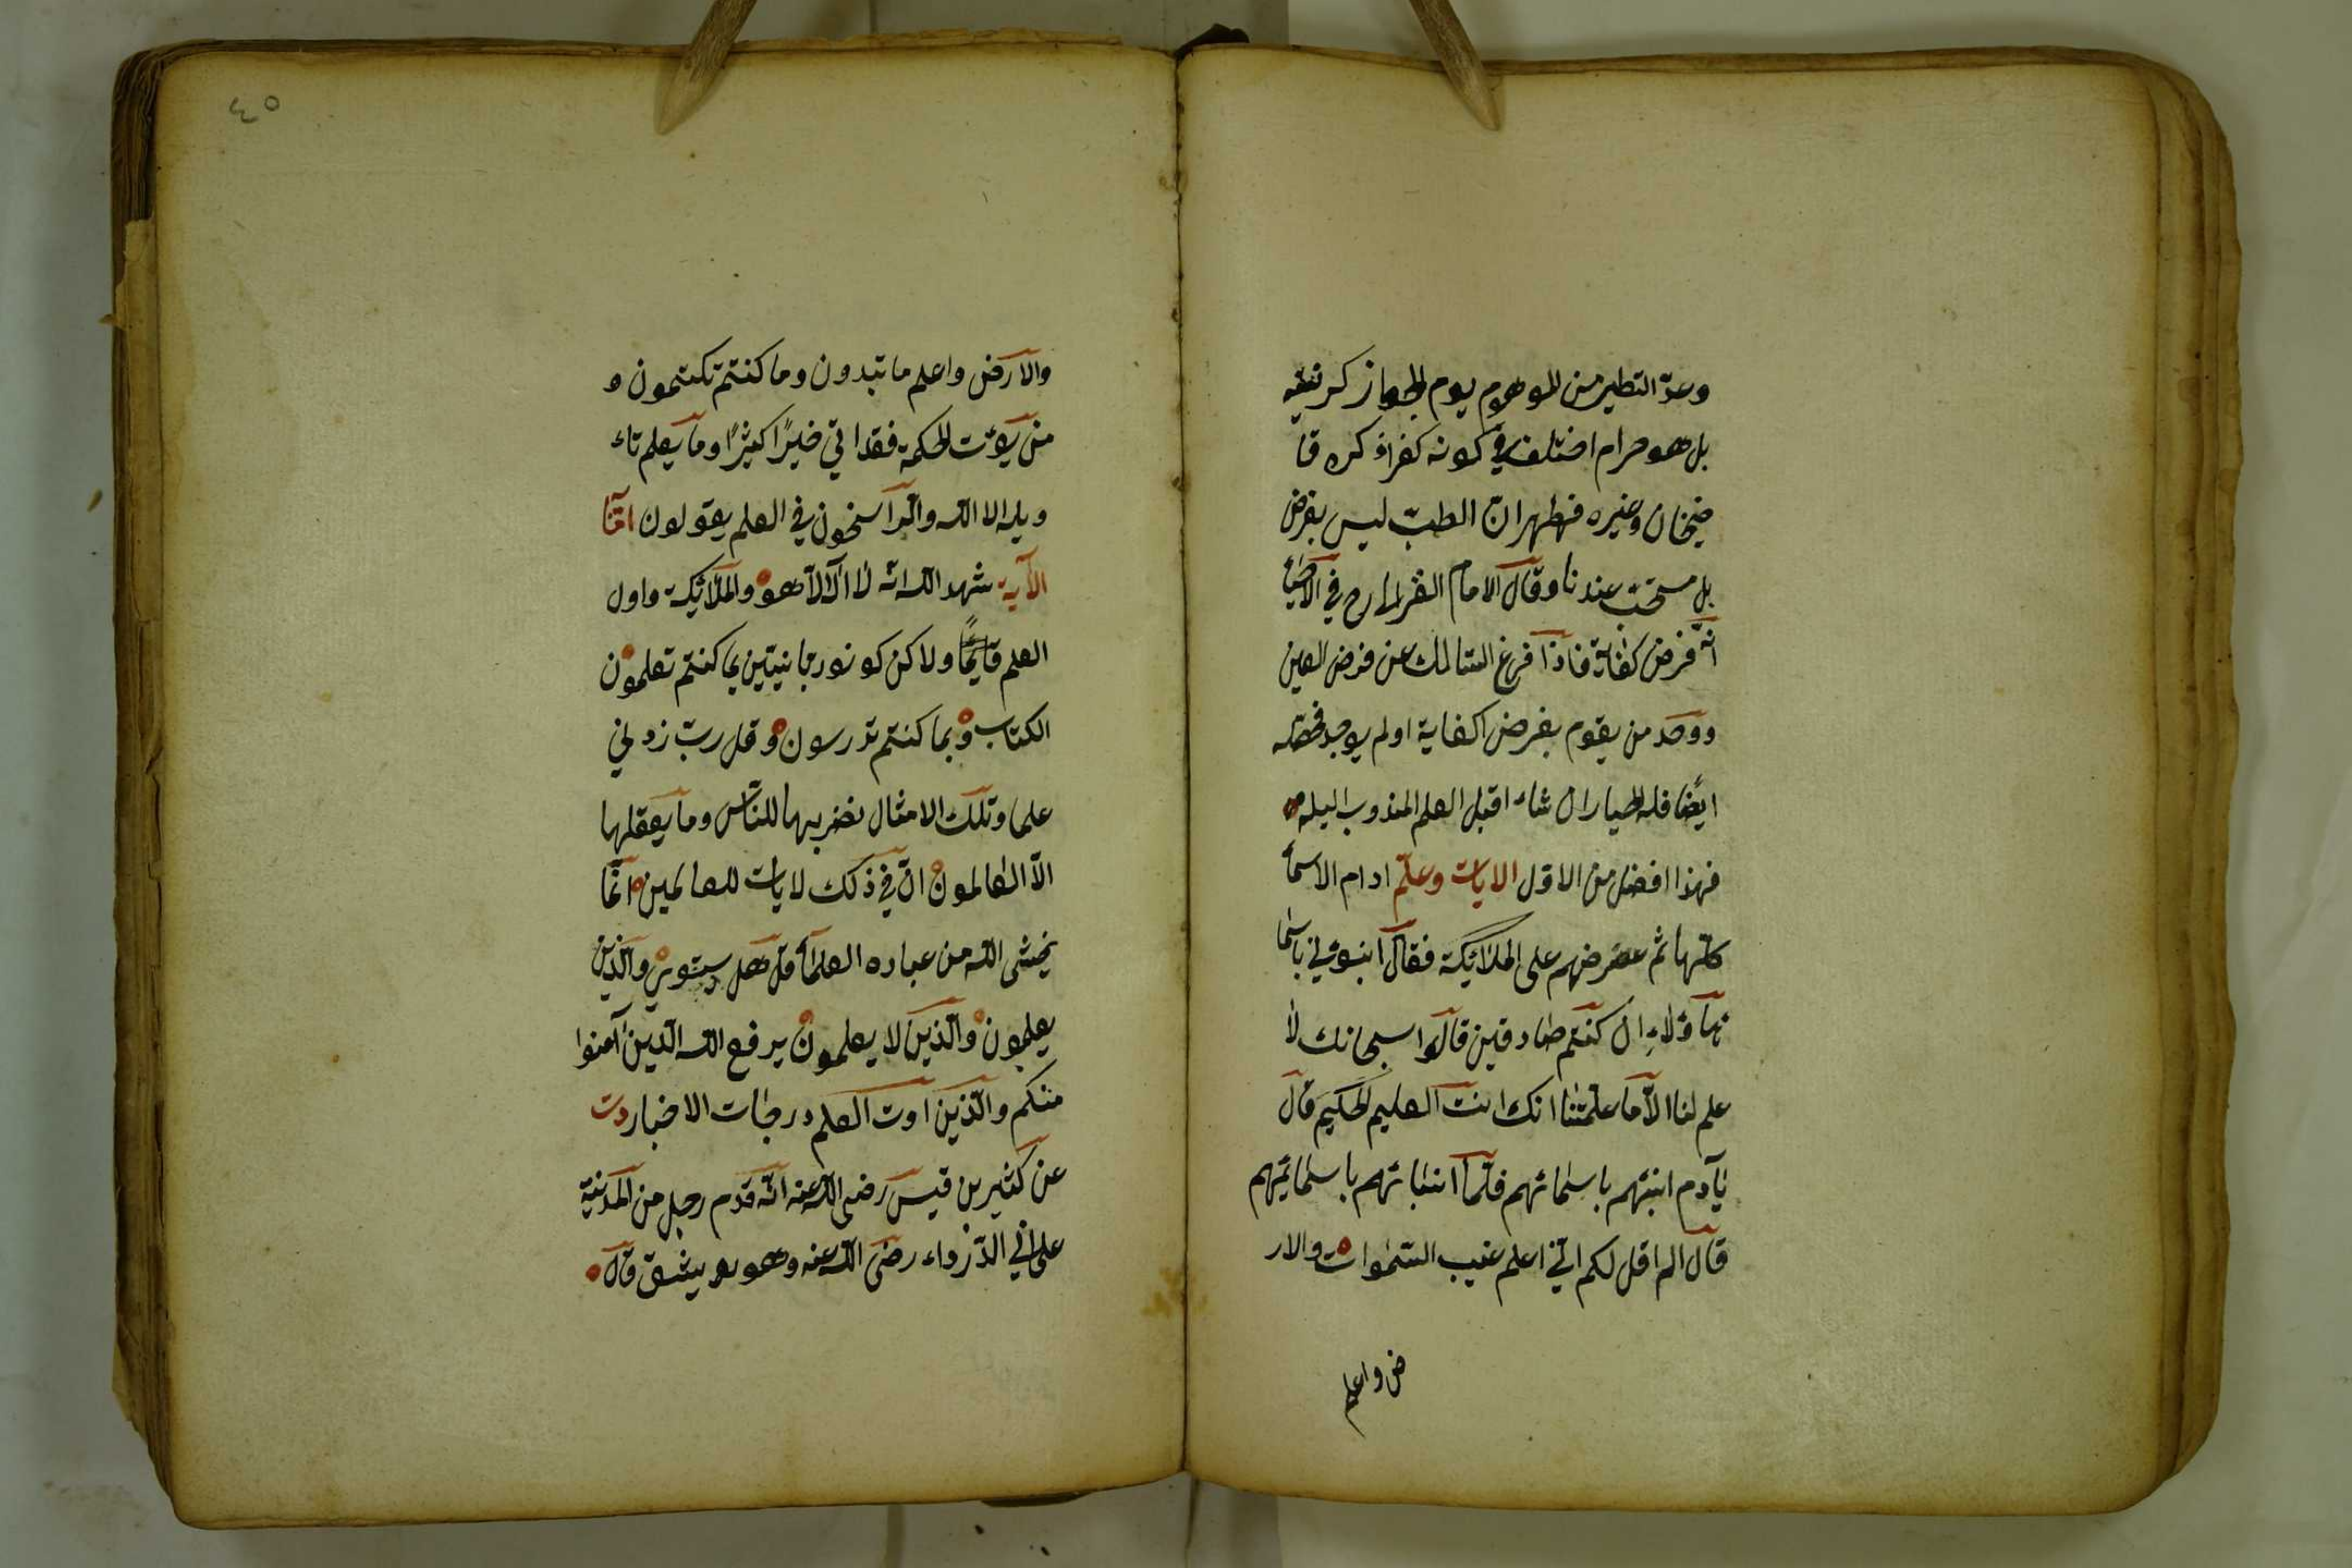 وعدّ التطير من الموهوم يوم الجواز كرنيفيه
بل هو حرام اختلف في كونه كفرا ذكره قا
ضيخان وغيره فظهر ان الطبّ ليس بفرض
بل مستحبّ عندنا وقال الامام الغزالى رح في الاحيا
انّه فرض كفاية فاذا فرغ السّالك عن فرض العين
ووجد من يقوم بفرض اكفاية او لم يوجد فحصّله
ايضًا فله الخيار ان شاء اقبل العلم المندوب اليله
فهذا افضل من الاوّل الايات وعلّم ادام الاسما
كلّها ثم عرضهم على الملائيكة فقال انبوئني باسما
ء هآؤلاءِ ان كنتم صادقين قالوا سبحانك لا
علم لنا الاّ ما علّمتنا انك انت العليم الحكيم قال
يآدم انبئهم باسمائهم فلمّا انبائهم باسمائيهم
قال الم اقل لكم انّي اعلم غيب السّموات والار
ض واعلم
٤٥
والارض واعلم ما تبدون وما كنتم تكتمون و
من يؤت الحكمة فقد اتي خيرًا كثيرًا وما يعلم تاء
ويله الا الله والرّاسخون في العلم يقولون امنّا
الآية شهد الله انّه لا اله الاّ هو والملائيكة واول
العلم قايمًا ولاكن كونو ربانيّين بما كنتم تعلمون
الكتاب وبما كنتم تدرسون وقل ربّ زدني
علما وتلك الامثال نضربها للنّاس وما يعقلها
الاّ العالمون انّ في ذلك لايات للعالمين انّما
يخشى الله من عباده العلماء قل هل يستوي والّذين
يعلمون والّذين لا يعلمون يرفع الله الّذين آمنوا
منكم والّذين اوت العلم درجات الاخبار دت
عن كثير بن قيس رضى الله عنه انّه قدم رجل من المدينة
على ابي الدّرداء رضى الله عنه وهو بد مشق قال